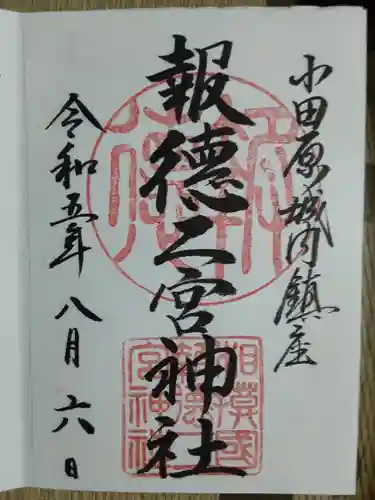 小田原城内鎮座
報徳二宮神社
令和五年八月六日
相模國
報徳二
宮神社
報徳